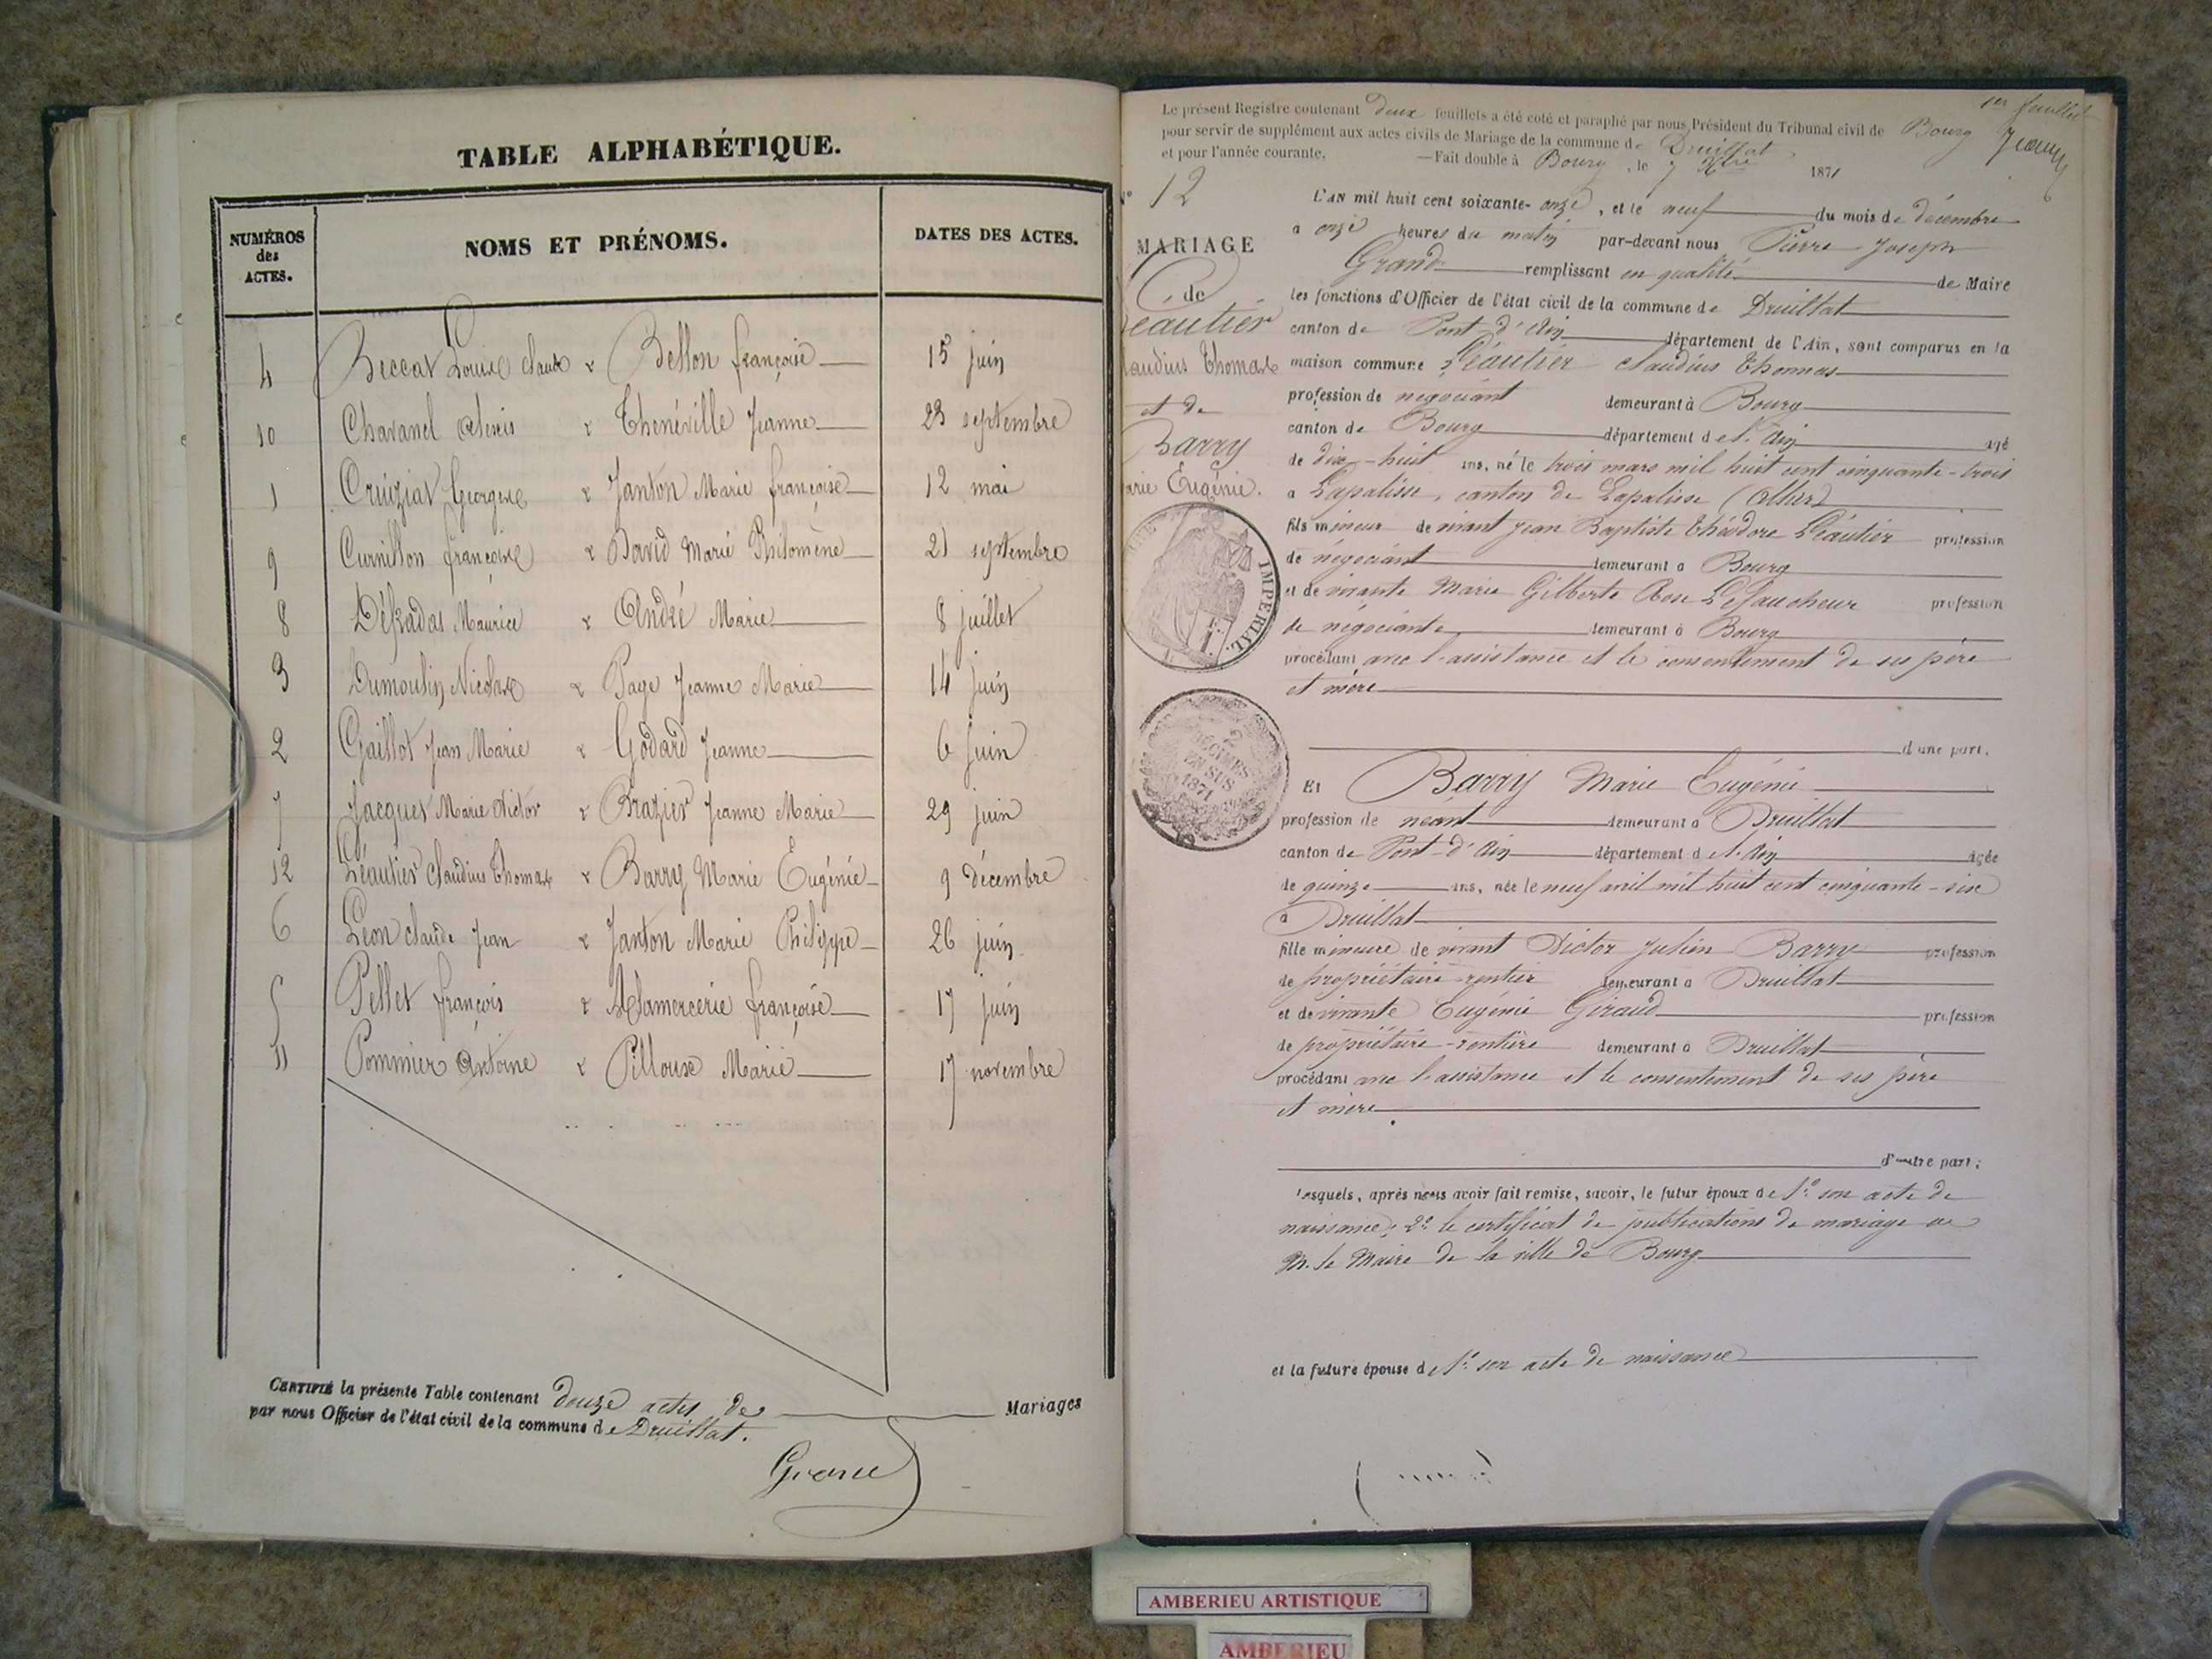 TABLE ALPHABÉTIQUE.
NUMÉROS des ACTES.
NOMS ET PRÉNOMS.
DATES DES ACTES.
4 Beccat Louise Claude & Bellon françoise 15 juin
10 Chavanel Alexis & Thenéville Jeanne 23 septembre
1 Cruiziat Georges & Janton Marie françoise 12 mai
9 Curnillon françoise & David Marie Philomène 21 septembre
8 Maurice & André Marie 8 juillet
3 Dumoulin Nicolas & Page Jeanne Marie 14 juin
2 Gaillot Jean Marie & Godard Jeanne 6 juin
7 Jacques Marie Victor & Brazier Jeanne Marie 29 juin
12 Léautier Claudius Thomas & Barry Marie Eugénie 9 décembre
6 Léon Claude Jean & Janton Marie Philippe 26 juin
5 Pellet françois & françoise 17 juin
11 Pommier Antoine & Pilloux Marie 17 novembre
CERTIFIÉ la présente Table contenant douze actes de Mariages
par nous Officier de l'état civil de la commune de Druillat.
1er feuillet
Le présent Registre contenant deux feuillets a été coté et paraphé par nous Président du Tribunal civil de Bourg
pour servir de supplément aux actes civils de Mariage de la commune de Druillat
et pour l'année courante. —Fait double à Bourg, le 7 Xbre 1871
N° 12
MARIAGE
de
éautier
laudius Thomas
et de
Barry
arie Eugénie.
IMPERIAL.
2
DÉCIMES
EN SUS
1871
L'AN mil huit cent soixante-onze, et le neuf du mois de décembre
a onze heures du matin par-devant nous Pierre Joseph
Grand remplissant en qualité de Maire
les fonctions d'Officier de l'état civil de la commune de Druillat
canton de Pont-d'Ain département de l'Ain, sont comparus en la
maison commune Léautier Claudius Thomas
profession de négociant demeurant à Bourg
canton de Bourg département de l'Ain agé
de dix-huit ans, né le trois mars mil huit cent cinquante-trois
a Lapalisse, canton de Lapalisse (Allier)
fils mineur de vivant Jean Baptiste Théodore Léautier profession
de négociant demeurant a Bourg
et de vivante Marie Gilberte Rose Lefaucheur profession
de négociante demeurant à Bourg
procédant avec l'assistance et le consentement de ses père
et mère
d'une part.
Et Barry Marie Eugénie
profession de néant demeurant a Druillat
canton de Pont-d'Ain département de l'Ain agée
de quinze ans, née le neuf avril mil huit cent cinquante-six
a Druillat
fille mineure de vivant Victor Julien Barry profession
de propriétaire-rentier demeurant a Druillat
et de vivante Eugénie Giraud profession
de propriétaire-rentière demeurant a Druillat
procédant avec l'assistance et le consentement de ses père
et mère
d'autre part;
lesquels, après nous avoir fait remise, savoir, le futur époux de 1° son acte de
naissance; 2° le certificat de publications de mariage de
M. le Maire de la ville de Bourg
et la future épouse de 1° son acte de naissance
AMBERIEU ARTISTIQUE
AMBERIEU